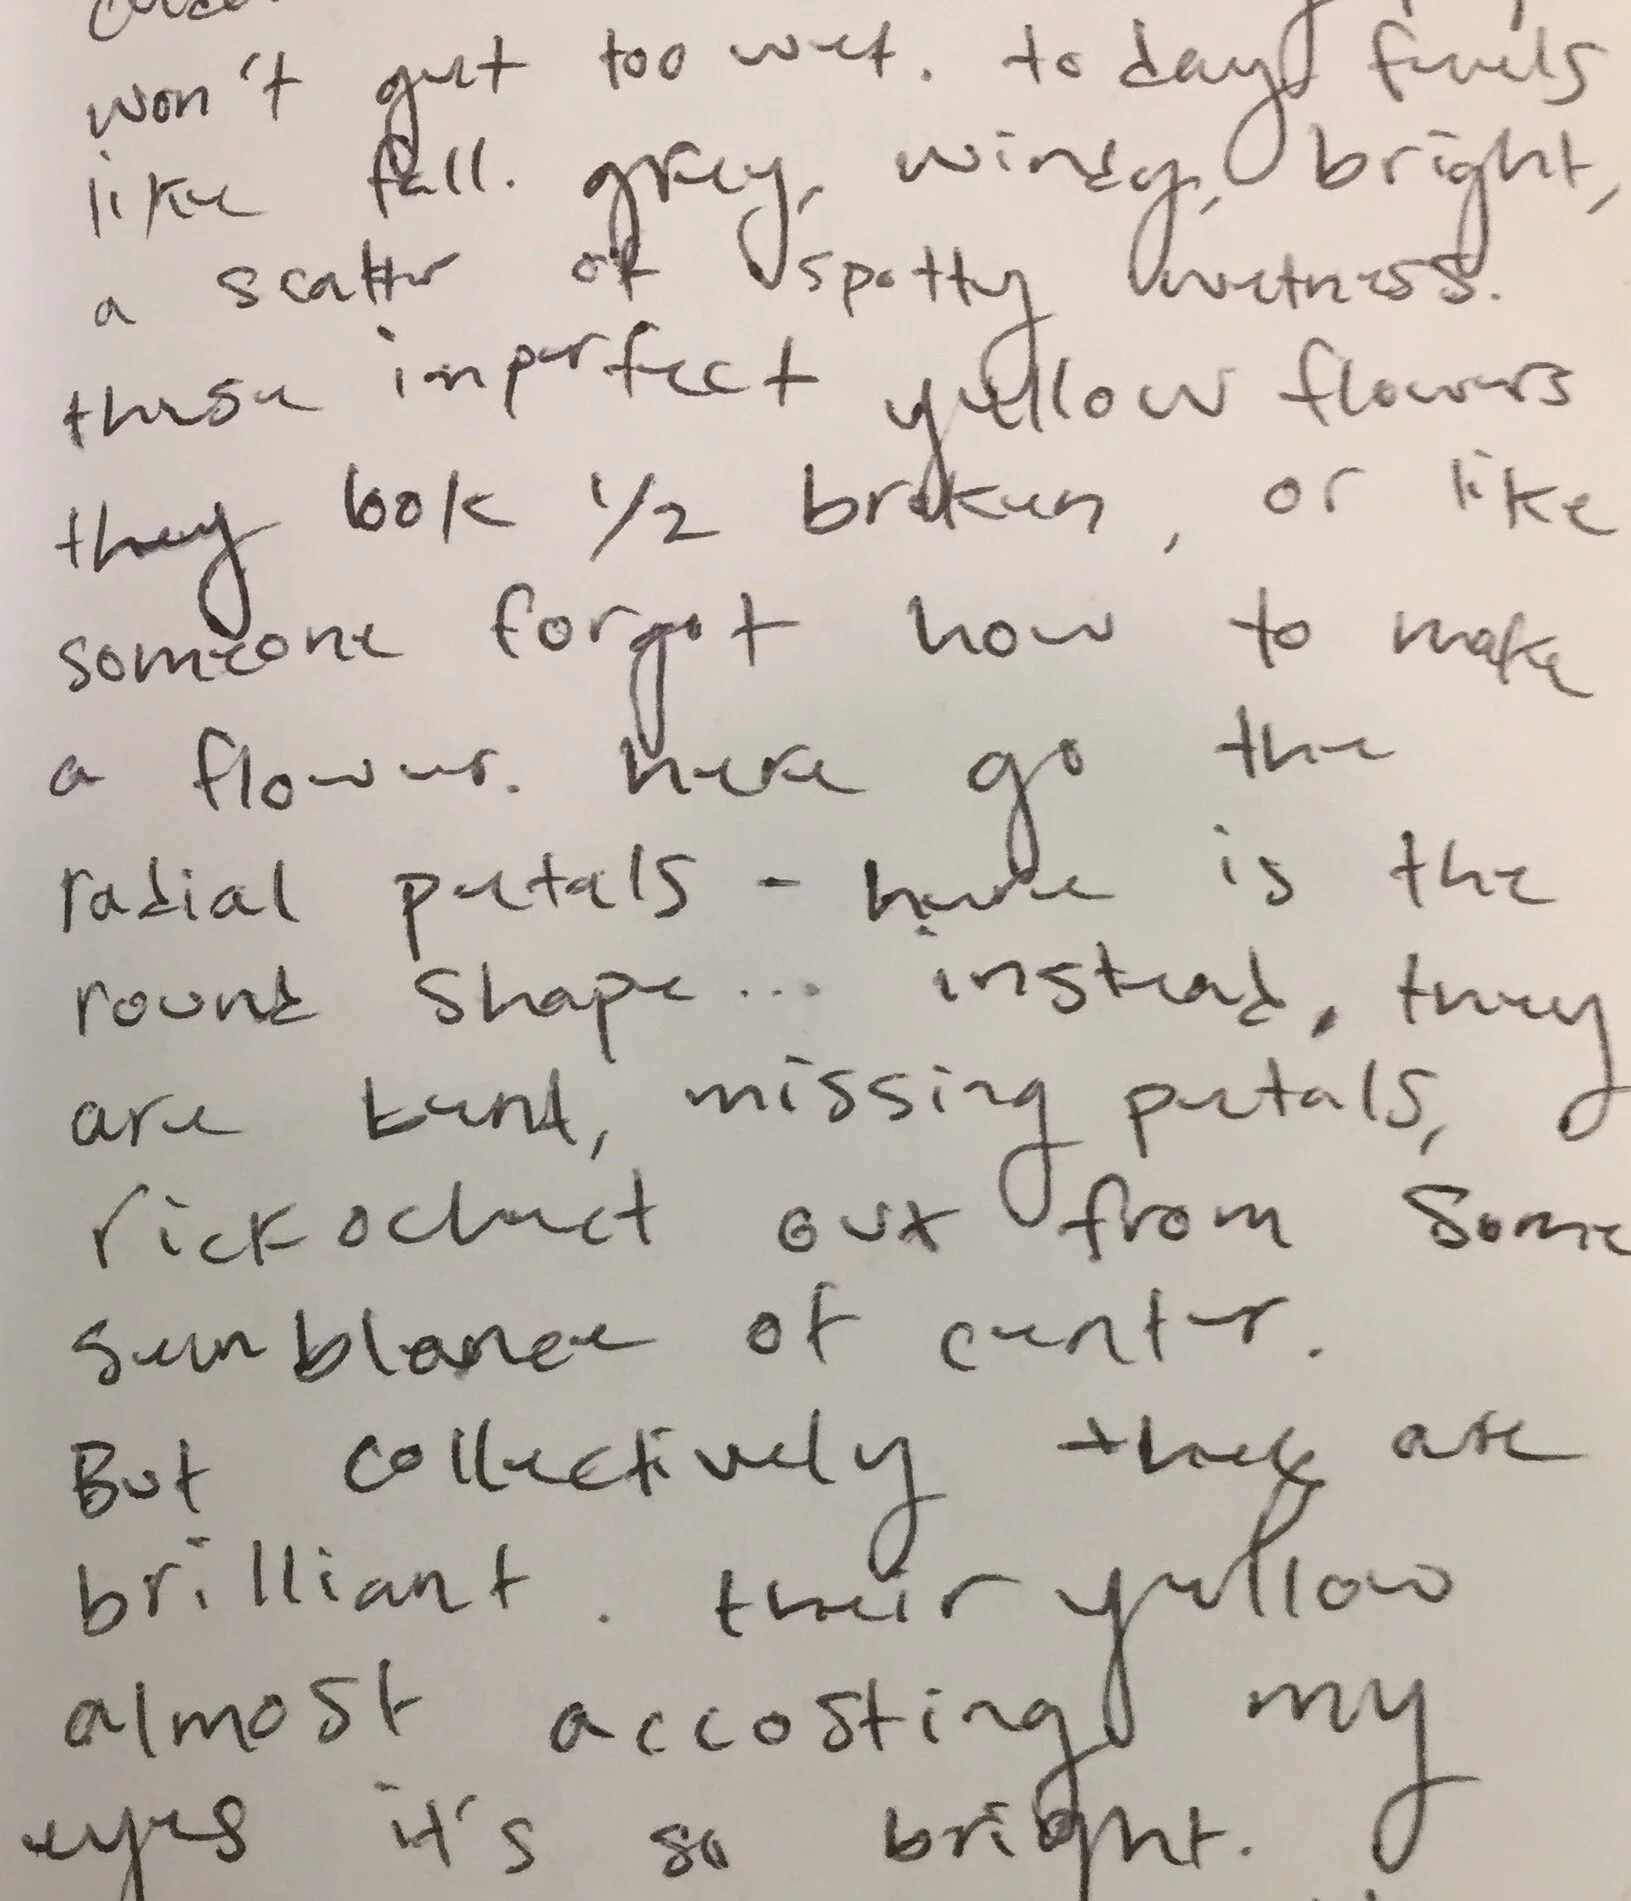 won't get too wet. today feels
like fall. grey, windy, bright,
a scatter of spotty wetness.
these imperfect yellow flowers
they look 1/2 broken, or like
someone forgot how to make
a flower. here go the
radial petals - here is the
round shape... instead, they
are bent, missing petals,
rickochect out from some
semblance of center.
But collectively they are
brilliant. their yellow
almost accosting my
eyes it's so bright.